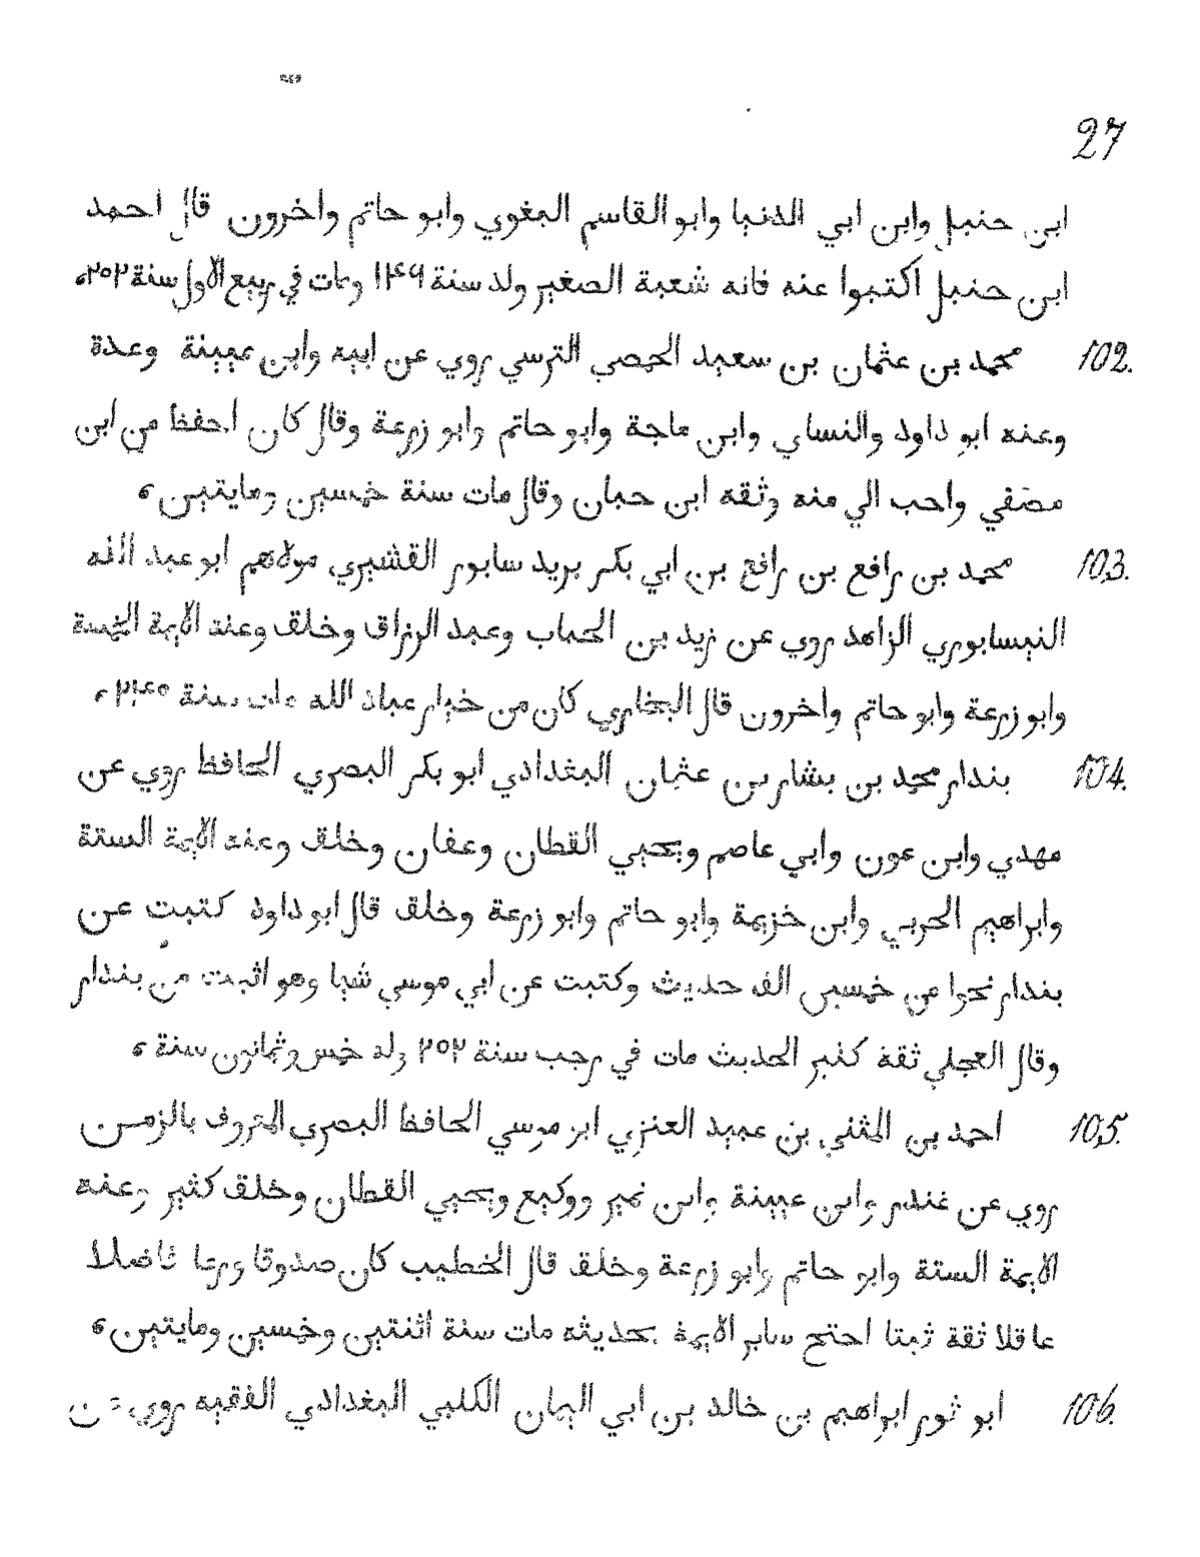 27
ابن حنبل وابن ابي الدنيا وابو القاسم البغوي وابو حاتم واخرون قال احمد
ابن حنبل اكتبوا عنه فانه شعبة الصغير ولد سنة ١٤٩ ومات في ربيع الاول سنة ٢٥٢
102. محمد بن عثمان بن سعيد الحمصي الترسي روي عن ابيه وابن عيينة وعدة
وعنه ابو داود والنساي وابن ماجة وابو حاتم وابو زرعة وقال كان احفظ من ابن
مصفي واحب الي منه وثقه ابن حبان وقال مات سنة خمسين ومايتين
103. محمد بن رافع بن رافع بن ابي بكر بريد سابور القشيري مولاهم ابو عبد الله
النيسابوري الزاهد روي عن زيد بن الحباب وعبد الرزاق وخلق وعنه الايمة الخمسة
وابو زرعة وابو حاتم واخرون قال البخاري كان من خيار عباد الله مات سنة ٢٤٥
104. بندار محمد بن بشار بن عثمان البغدادي ابو بكر البصري الحافظ روي عن
مهدي وابن عون وابي عاصم ويحيي القطان وعفان وخلق وعنه الايمة الستة
وابراهيم الحربي وابن خزيمة وابو حاتم وابو زرعة وخلق قال ابو داود كتبت عن
بندار نحوا من خمسين الف حديث وكتبت عن ابي موسي شيا وهو اثبت من بندار
وقال العجلي ثقة كثير الحديث مات في رجب سنة ٢٥٢ وله خمس وثمانون سنة
105. احمد بن المثني بن عبيد العنزي ابو موسي الحافظ البصري المعروف بالزمن
روي عن غندر وابن عيينة وابن نمير ووكيع ويحيي القطان وخلق كثير وعنه
الايمة الستة وابو حاتم وابو زرعة وخلق قال الخطيب كان صدوقا ورعا فاضلا
عاقلا ثقة ثبتا احتج ساير الايمة بحديثه مات سنة اثنتين وخمسين ومايتين
106. ابو ثور ابراهيم بن خالد بن ابي اليمان الكلبي البغدادي الفقيه روي عن